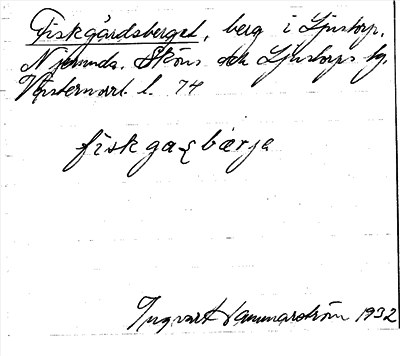 Fiskgårdsberget, berg i Ljustorp,
Njurunda, Sköns och Ljustorps tg.
Västernorrl l. 74
fiskgaʂbærjə
Ingvart Hammarström 1932